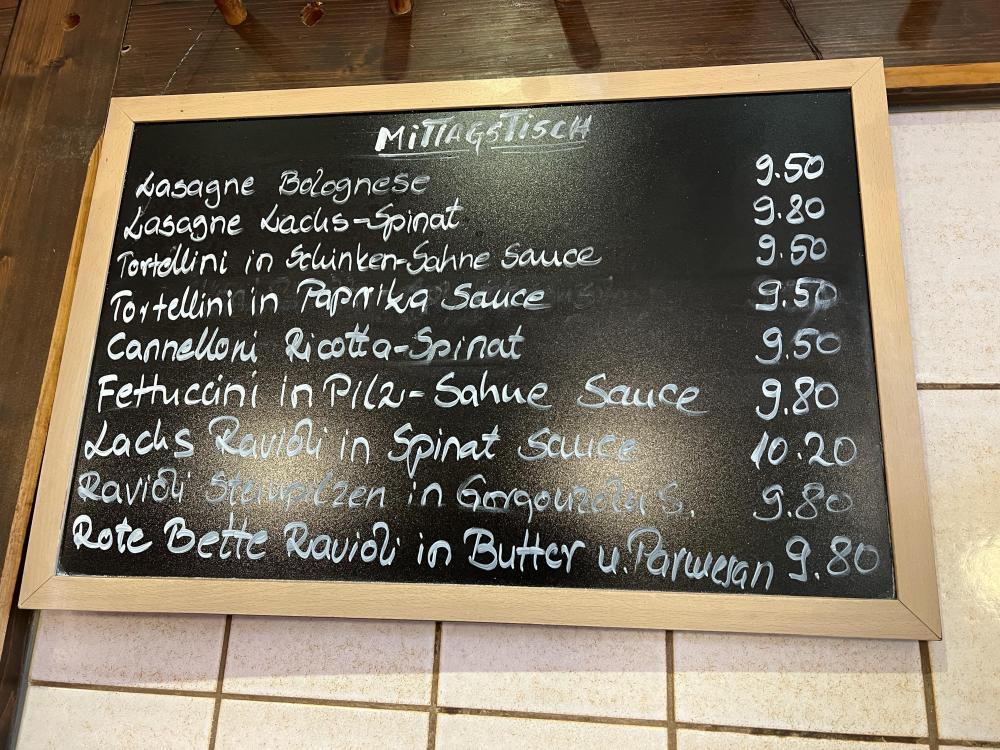 MITTAGSTISCH
Lasagne Bolognese 9.50
Lasagne Lachs-Spinat 9.80
Tortellini in Schinken-Sahne Sauce 9.50
Tortellini in Paprika Sauce 9.50
Cannelloni Ricotta-Spinat 9.50
Fettuccini in Pilz-Sahne Sauce 9.80
Lachs Ravioli in Spinat Sauce 10.20
Ravioli Steinpilzen in Gorgonzola S. 9.80
Rote Bette Ravioli in Butter u. Parmesan 9.80